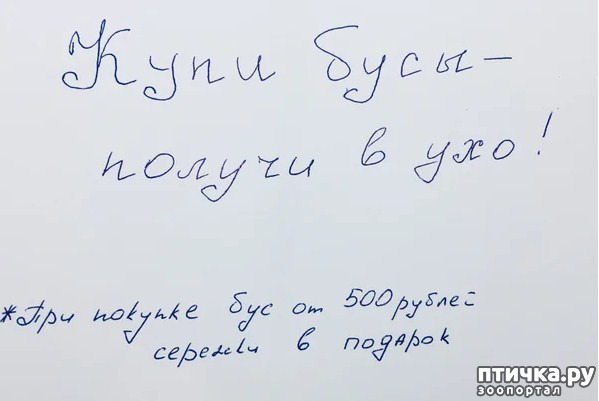 Купи бусы –
получи в ухо!
*При покупке бус от 500 рублей
сережки в подарок
птичка.ру
зоопортал